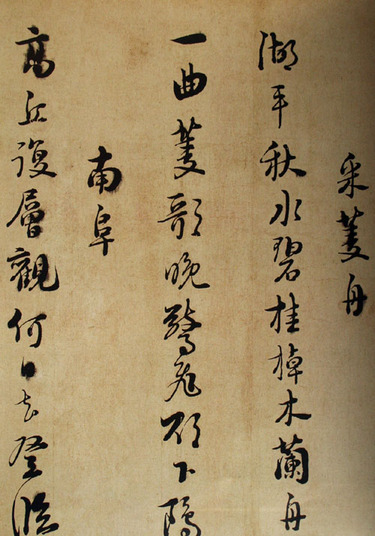 采菱舟
湖平秋水碧桂棹木蘭舟
一曲菱歌晚驚飛欲下鷗
南阜
高丘復層觀何日去登臨